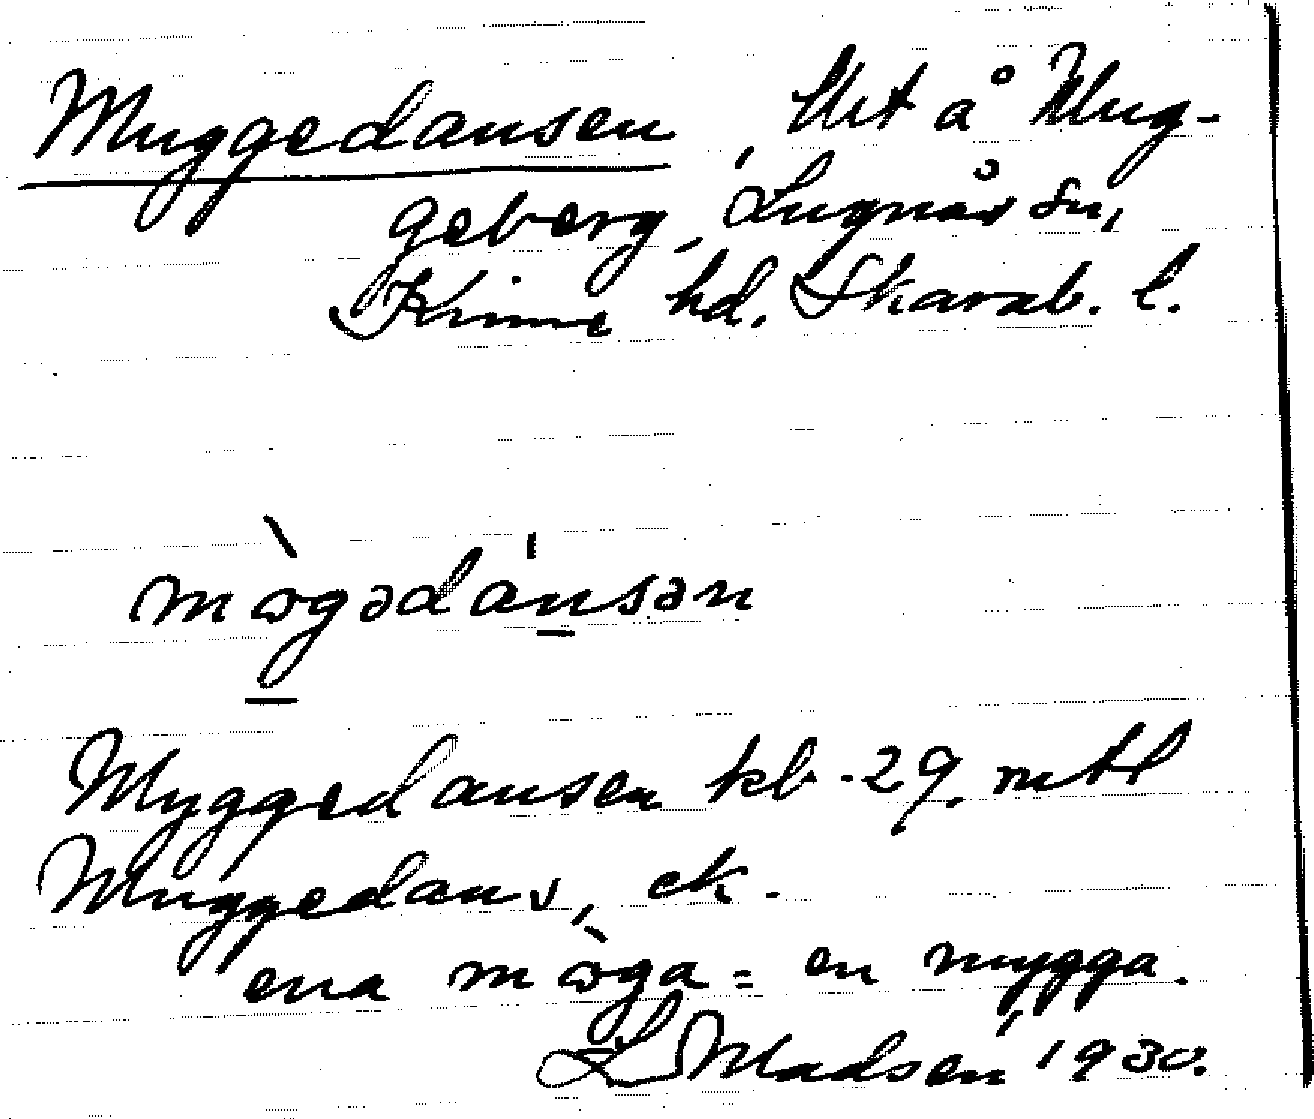 Muggedansen, Utt å Mug-
geberg, Lugnås sn,
Kinne hd. Skarab. l.
mògədánsən
Myggedansen kb. 29, mtl
Muggedans, ek.
ena mòga = en mygga.
L Madsén 1930.